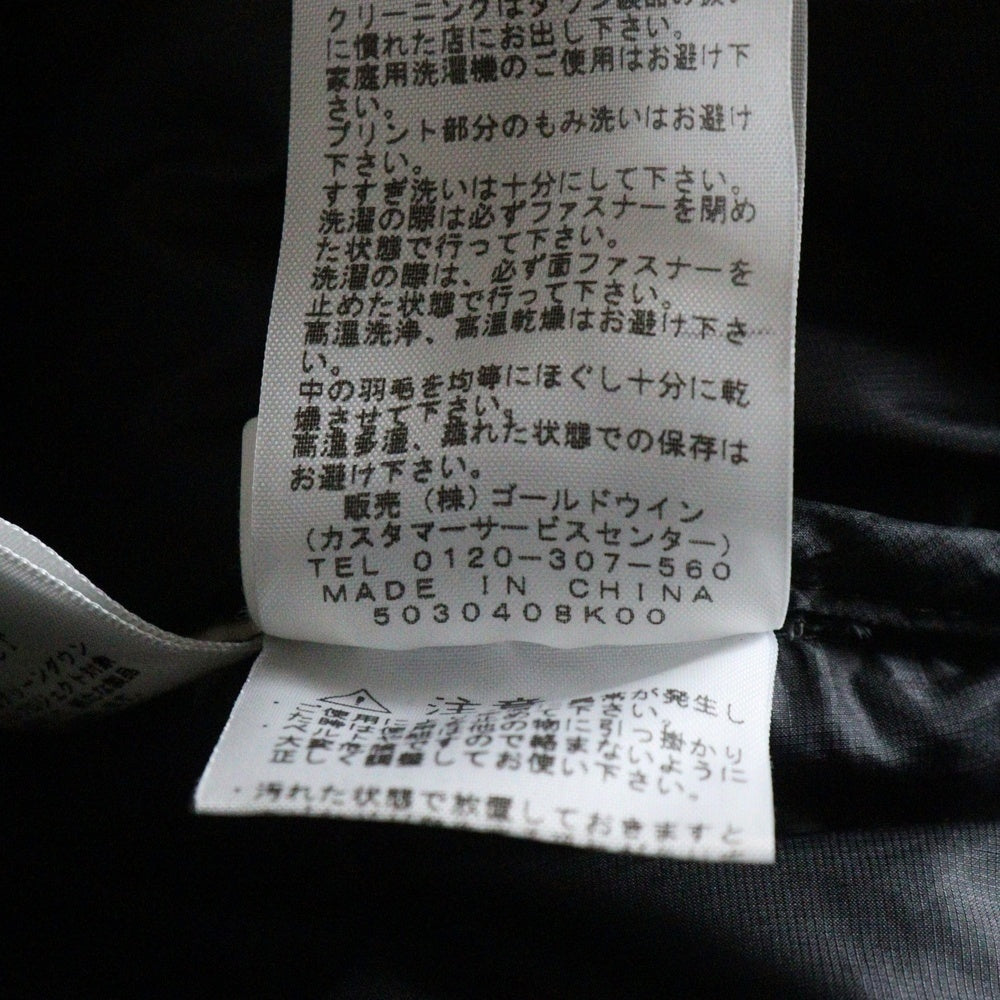 クリーニングはダウン製品の扱い
に慣れた店にお出し下さい。
家庭用洗濯機のご使用はお避け下
さい。
プリント部分のもみ洗いはお避け
下さい。
すすぎ洗いは十分にして下さい。
洗濯の際は必ずファスナーを閉め
た状態で行って下さい。
洗濯の際は、必ず面ファスナーを
止めた状態で行って下さい。
高温洗浄、高温乾燥はお避け下さ
い。
中の羽毛を均等にほぐし十分に乾
燥させて下さい。
高温多湿、濡れた状態での保存は
お避け下さい。
販売 (株)ゴールドウイン
(カスタマーサービスセンター)
TEL 0120-307-560
MADE IN CHINA
5030408K00
注意
が発生し
引っ掛かり
まないように
お使い下さい。
・汚れた状態で放置しておきますと